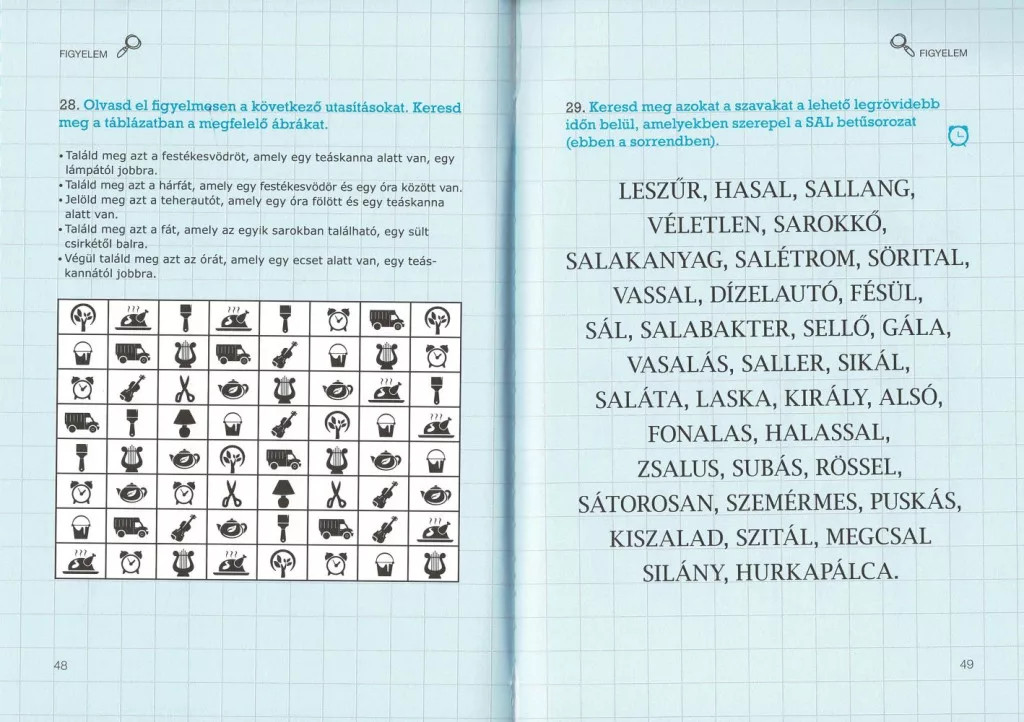 FIGYELEM
28. Olvasd el figyelmesen a következő utasításokat. Keresd
meg a táblázatban a megfelelő ábrákat.
• Találd meg azt a festékesvödröt, amely egy teáskanna alatt van, egy
lámpától jobbra.
• Találd meg azt a hárfát, amely egy festékesvödör és egy óra között van.
• Jelöld meg azt a teherautót, amely egy óra fölött és egy teáskanna
alatt van.
• Találd meg azt a fát, amely az egyik sarokban található, egy sült
csirkétől balra.
• Végül találd meg azt az órát, amely egy ecset alatt van, egy teás-
kannától jobbra.
48
FIGYELEM
29. Keresd meg azokat a szavakat a lehető legrövidebb
időn belül, amelyekben szerepel a SAL betűsorozat
(ebben a sorrendben).
LESZŰR, HASAL, SALLANG,
VÉLETLEN, SAROKKŐ,
SALAKANYAG, SALÉTROM, SÖRITAL,
VASSAL, DÍZELAUTÓ, FÉSÜL,
SÁL, SALABAKTER, SELLŐ, GÁLA,
VASALÁS, SALLER, SIKÁL,
SALÁTA, LASKA, KIRÁLY, ALSÓ,
FONALAS, HALASSAL,
ZSALUS, SUBÁS, RÖSSEL,
SÁTOROSAN, SZEMÉRMES, PUSKÁS,
KISZALAD, SZITÁL, MEGCSAL
SILÁNY, HURKAPÁLCA.
49